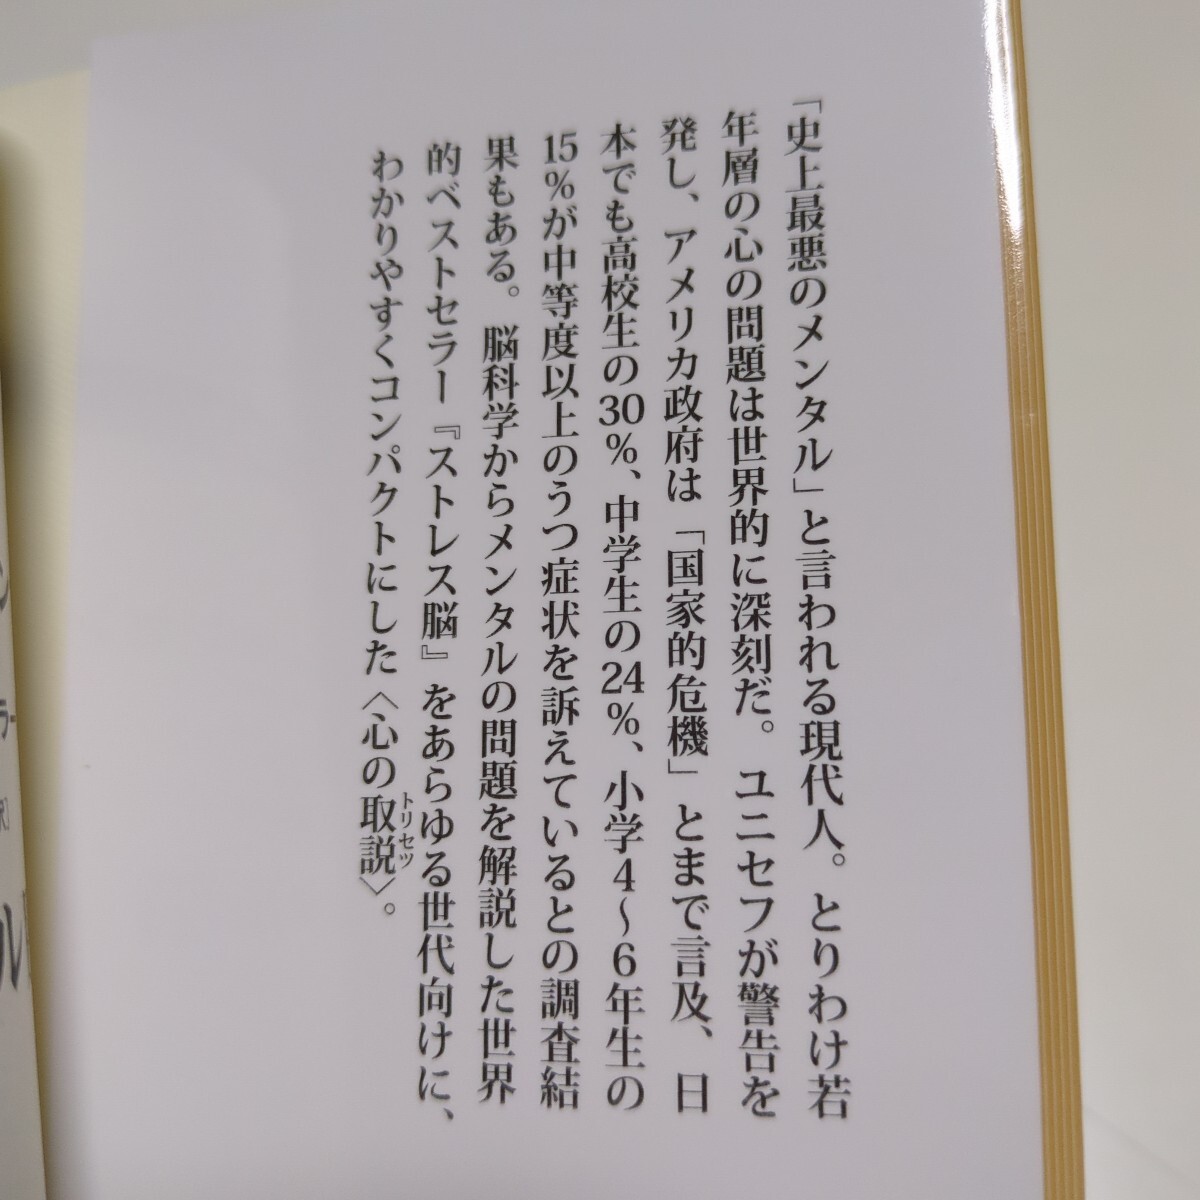 「史上最悪のメンタル」と言われる現代人。とりわけ若
年層の心の問題は世界的に深刻だ。ユニセフが警告を
発し、アメリカ政府は「国家的危機」とまで言及、日
本でも高校生の30%、中学生の24%、小学4〜6年生の
15%が中等度以上のうつ症状を訴えているとの調査結
果もある。脳科学からメンタルの問題を解説した世界
的ベストセラー『ストレス脳』をあらゆる世代向けに、
わかりやすくコンパクトにした〈心の取説〉。
トリセツ